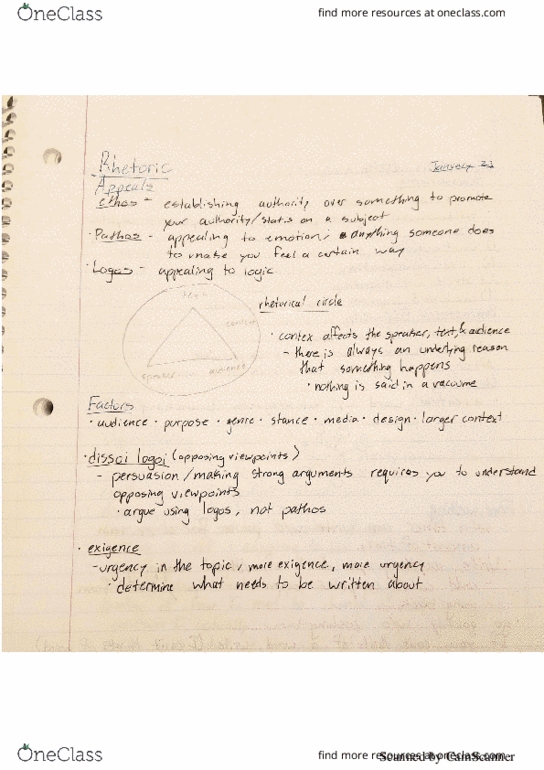 OneClass
find more resources at oneclass.com
Rhetoric
January 23
Appeals
ethos - establishing authority over something to promote
your authority/status on a subject
· Pathos - appealing to emotion; anything someone does
to make you feel a certain way
· Logos - appealing to logic
text
rhetorical circle
context
· contex affects the spraker, text, & audience
- there is always an underlying reason
that something happens
speaker
audience
· nothing is said in a vacuume
Factors
· audience · purpose · genre · stance · media · design · larger context
· dissoi logoi (opposing viewpoints)
- persuasion/making strong arguments requires you to understand
opposing viewpoints
· argue using logos, not pathos
· exigence
- urgency in the topic, more exigence, more urgency
· determine what needs to be written about
OneClass
find more resources at oneclass.com
Scanned by CamScanner